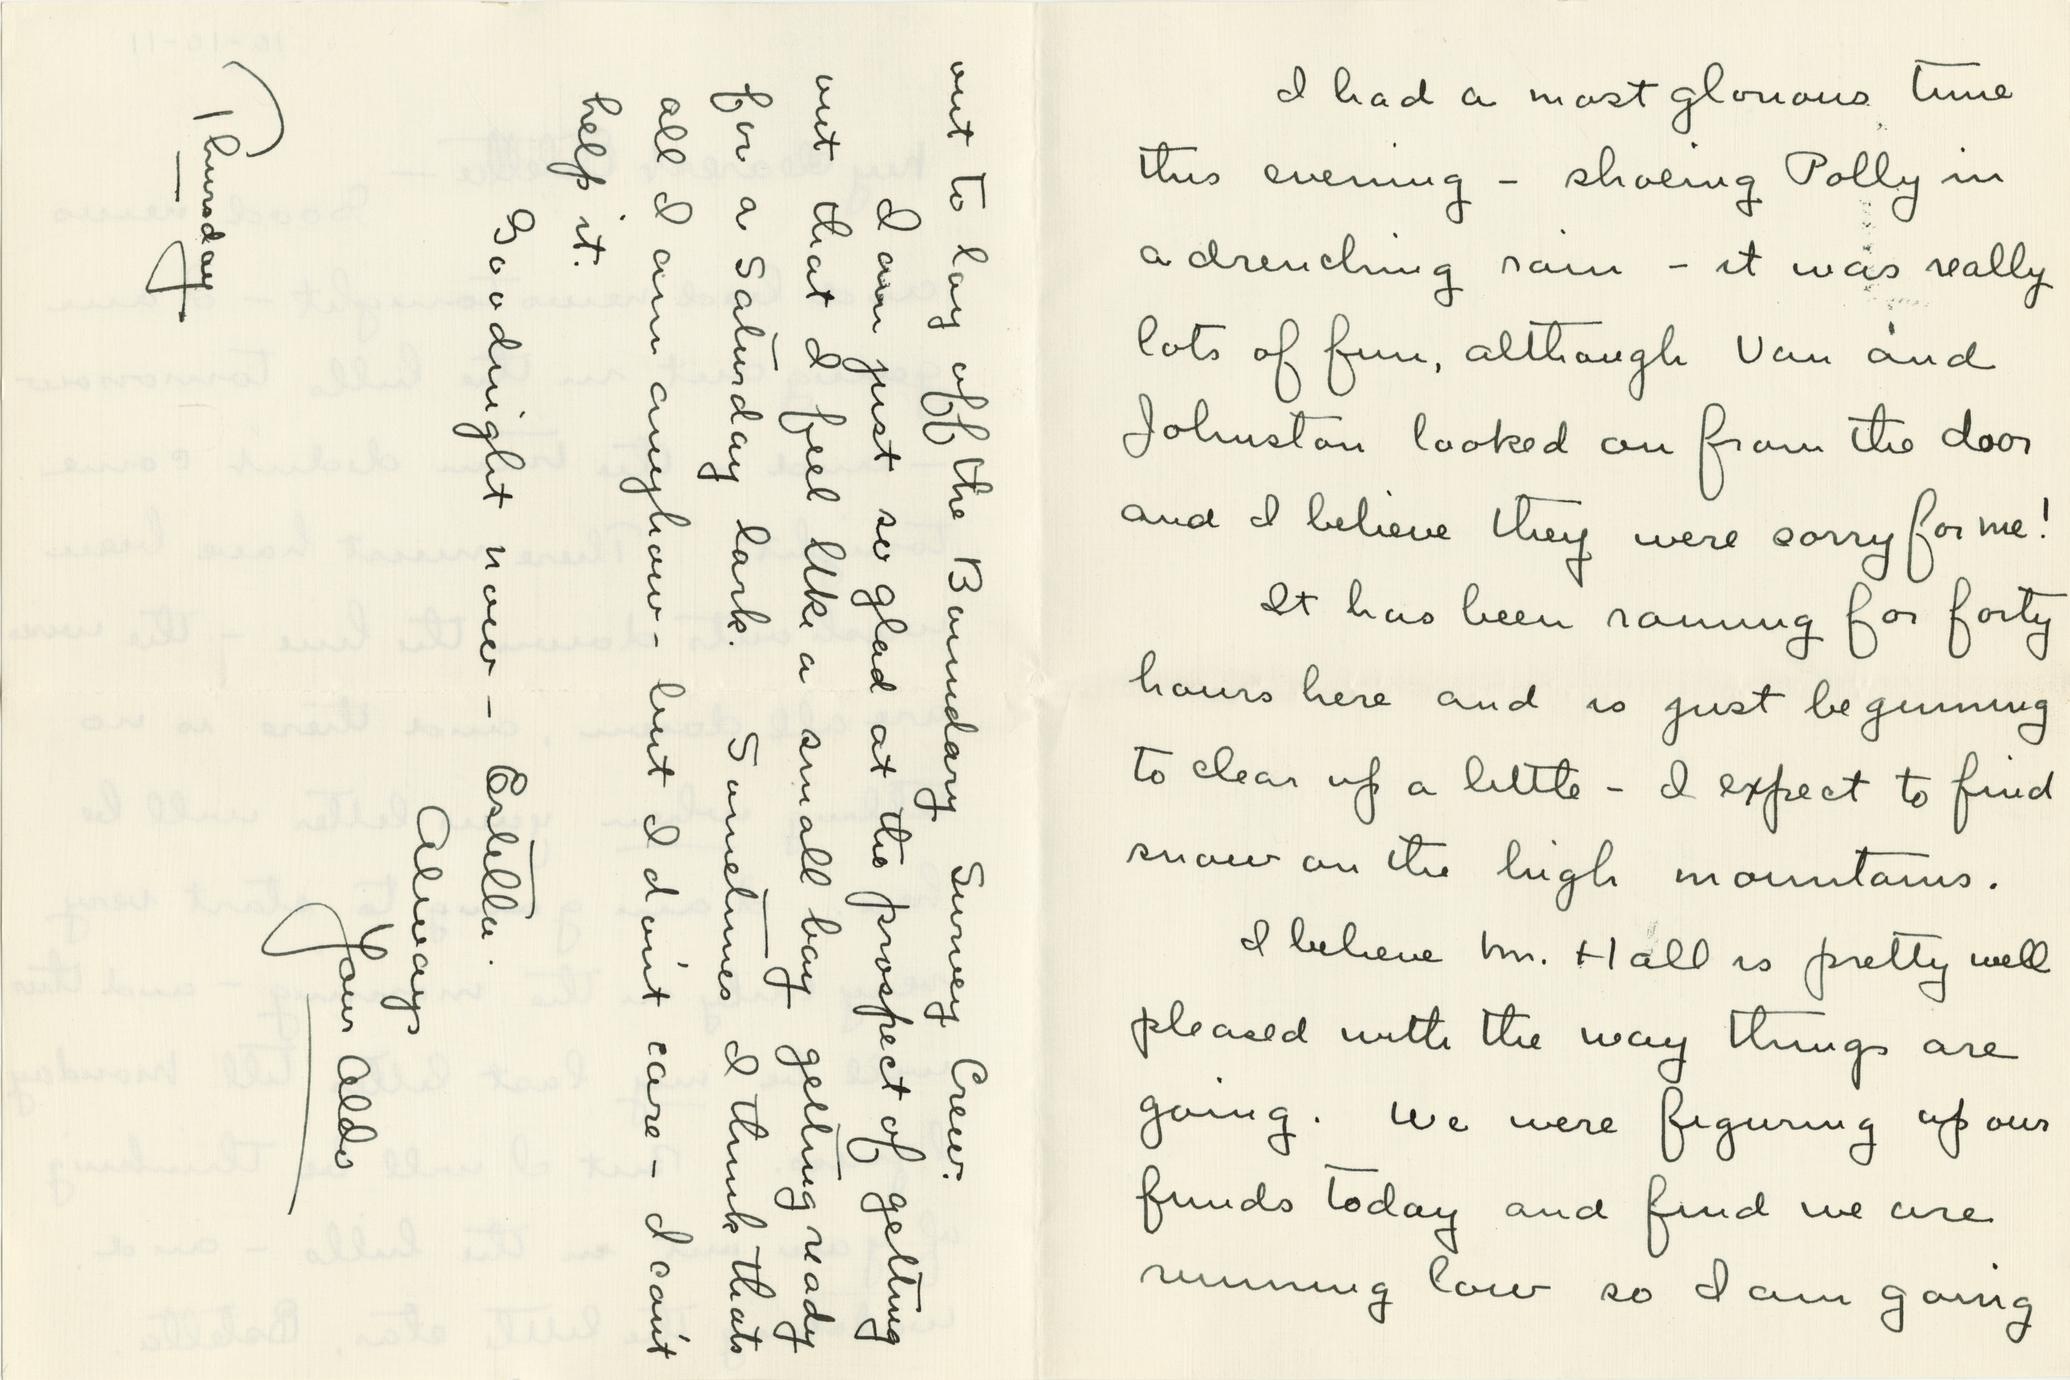 I had a most glorious time
this evening - shoeing Polly in
a drenching rain - it was really
lots of fun, although Van and
Johnston looked on from the door
and I believe they were sorry for me!
It has been raining for forty
hours here and is just beginning
to clear up a little - I expect to find
snow on the high mountains.
I believe Mr. Hall is pretty well
pleased with the way things are
going. We were figuring up our
funds today and find we are
running low so I am going
out to lay off the Boundary Survey Crew.
I am just so glad at the prospect of getting
out that I feel like a small boy getting ready
for a Saturday lark. Sometimes I think thats
all I am anyhow - but I don't care - I can't
help it.
Goodnight now - Estella.
Always
Your Aldo
Thursday